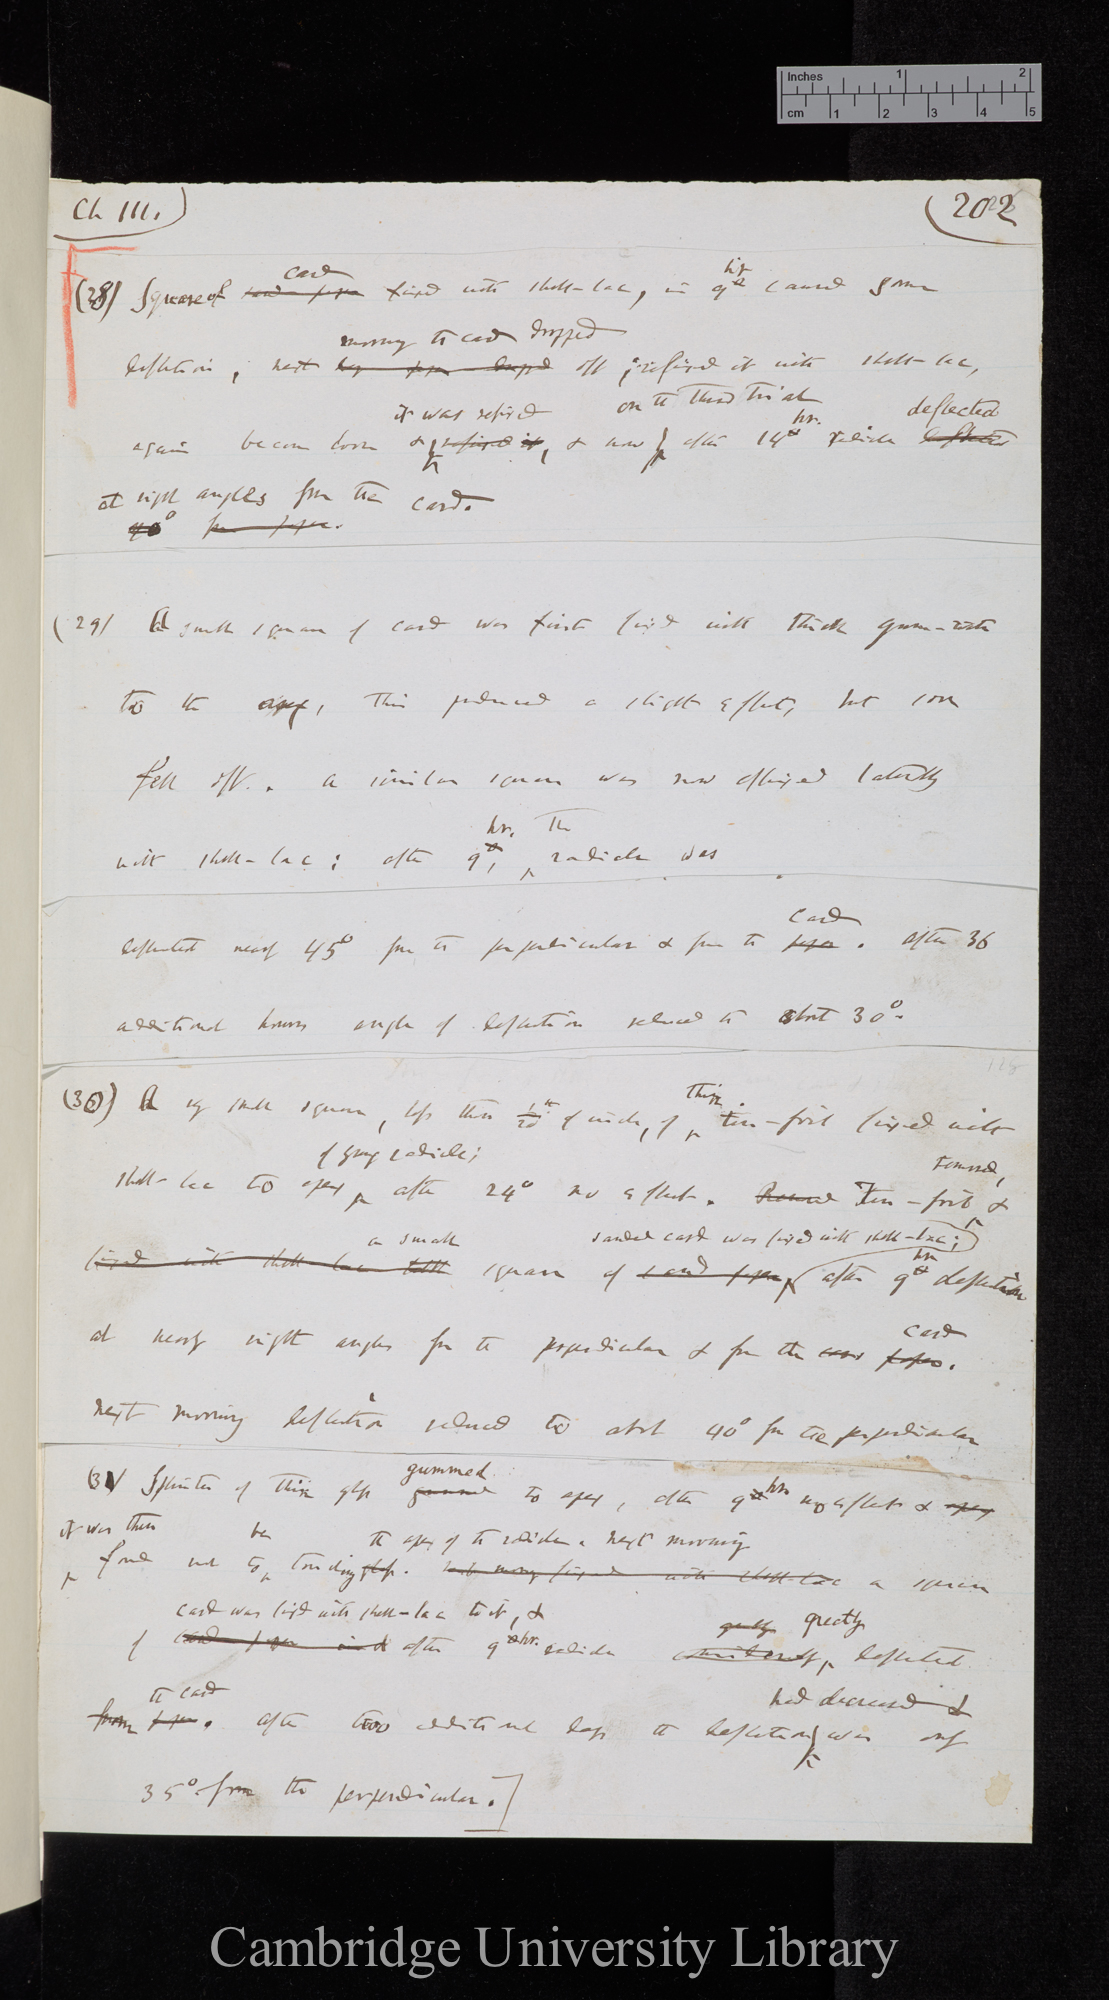 Inches 1 2
cm 1 2 3 4 5
Ch III.
202
card hr
(28) Square of sand paper fixed with shell-lac, in 9h caused some
morning the card dropped
deflection; next day paper dropped off; refixed it with shell-lac,
it was refixed on the third trial hr. deflected
again became loose & refixed it, & now after 14h radicle deflected
at right angles from the card.
90° from paper.
(29) A small square of card was first fixed with thick gum-water
to the apex, This produced a slight effect, but soon
fell off. A similar square was now affixed laterally
hr. The
with shell-lac; after 9h, radicle was
card
deflected nearly 45° from the perpendicular & from the paper. After 36
additional hours angle of deflection reduced to about 30°.
(30) A very small square, less than 1/20th of inch, of tin-foil fixed with
thin
of young radicle; removed,
shell-lac to apex after 24° no effect. Removed Tin-foil, &
a small sanded card was fixed with shell-lac; hr
fixed with shell-lac square of sand paper, after 9h deflection
card
at nearly right angles from the perpendicular & from the paper.
next morning deflection reduced to about 40° from the perpendicular
gummed hr
(31) Splinter of thin glass gummed to apex, after 9h no effect & apex
it was then be the apex of the radicle. next morning
found not to touching glass. Next morning fixed with shell-lac a square
card was fixed with shell-lac to it, & greatly
of sand paper and after 9 hr. radicle considerably deflected
the card had decreased &
from paper. After two additional days the deflection was only
35° from the perpendicular.]
Cambridge University Library